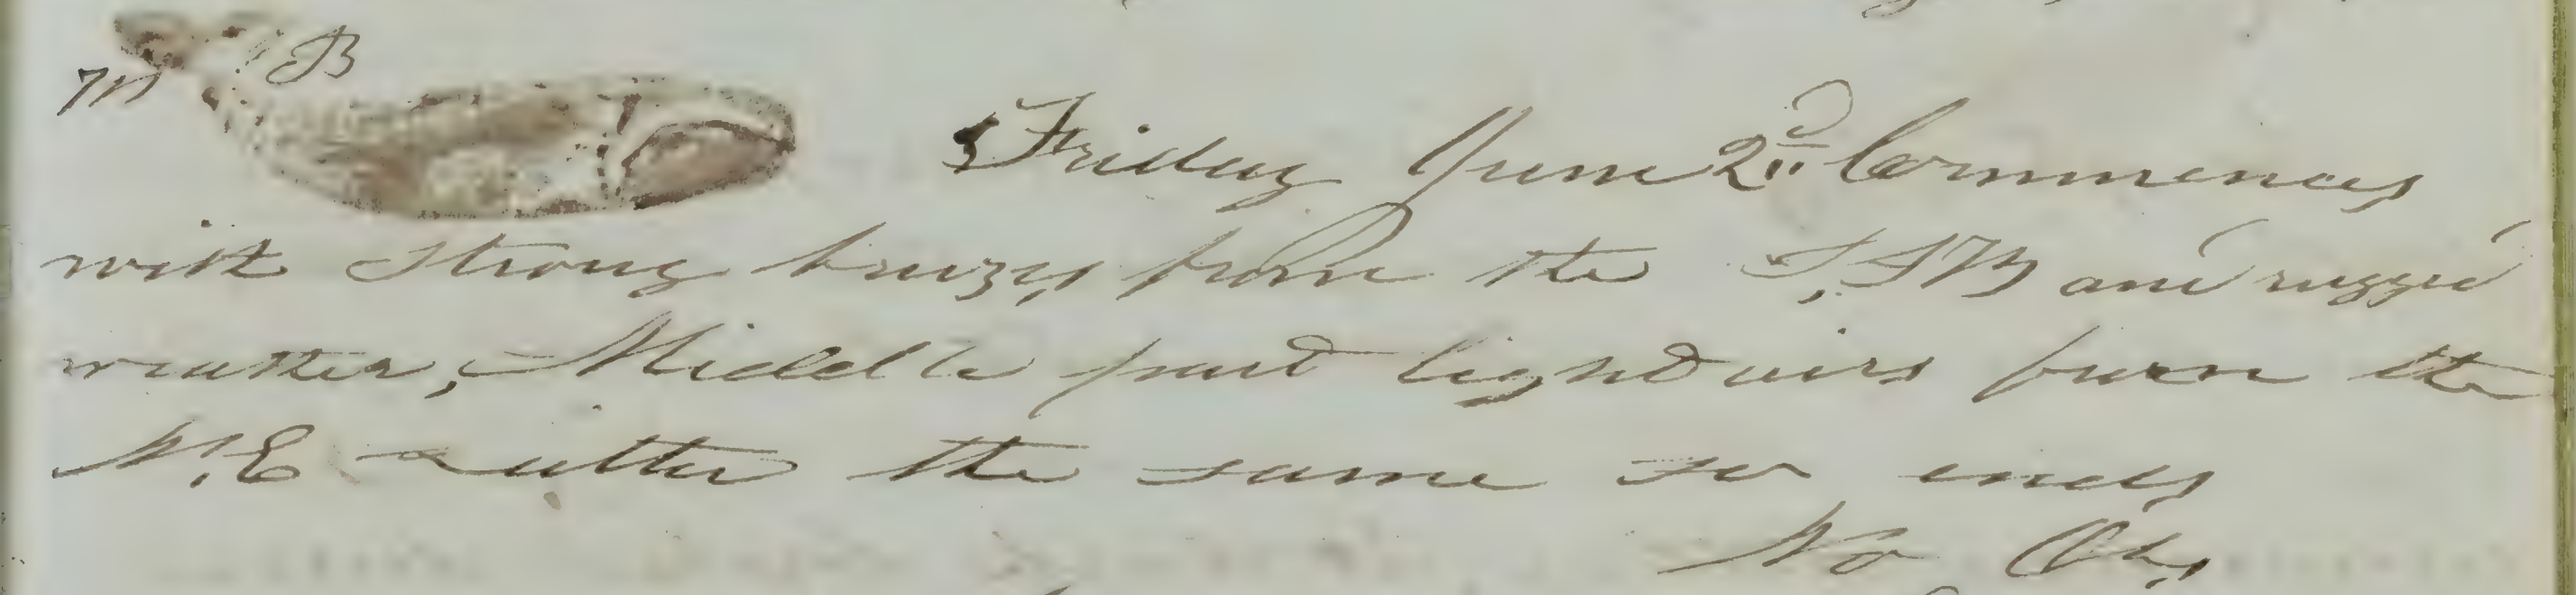 M B
Friday June 2D Commences
with strong breezes from the S,SW and rugged
weather, Middle part light airs from the
N,E latter the same so ends
No Obs,